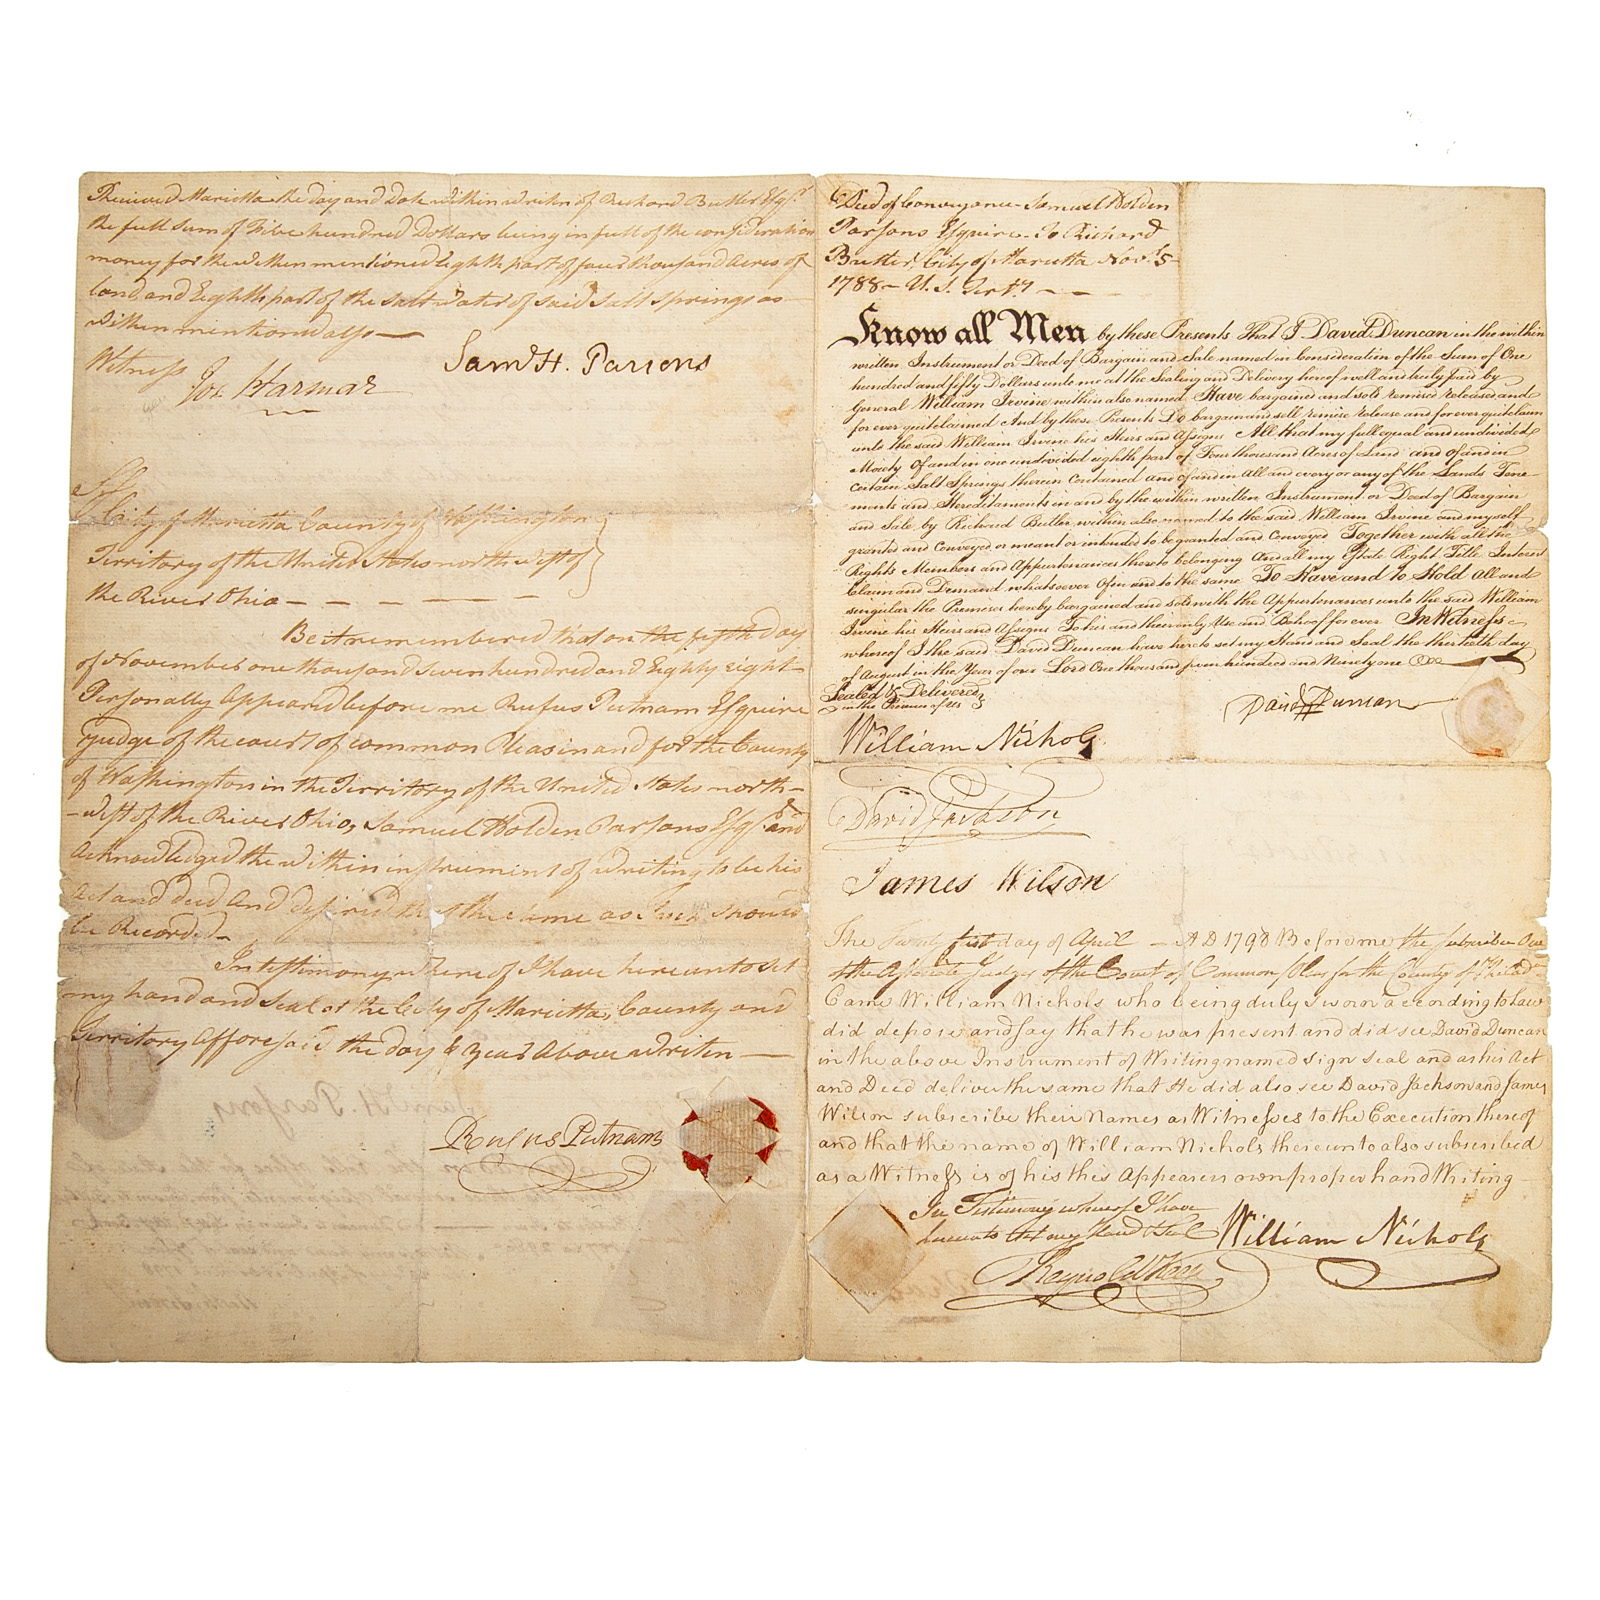 Received Marietta the day and Date within writen of Richard Butler Esqr.
the full sum of Five hundred Dollars being in full of the consideration
money for the within mentioned Eighth part of four thousand Acres of
land and Eighth part of the salt Water of said salt springs as
within mentioned also —
Witness
Saml H. Parsons
Jos Harmar
City of Marietta County of Washington
Territory of the United States north West of
the River Ohio — — — — —
Be it remembered that on the fifth day
of November one thousand seven hundred and Eighty eight
Personally Appeared before me Rufus Putnam Esquire
Judge of the court of common Pleas in and for the County
of Washington in the Territory of the United States north-
-West of the River Ohio, Samuel Holden Parsons Esqr. and
Acknowledged the within instrument of writing to be his
Act and deed and desired that the same as Such should
be Recorded —
In testimony where of I have here unto set
my hand and seal at the City of Marietta, County and
Territory afforesaid the day & year Above writen —
Rufus Putnam
Deed of Conveyance — Samuel Holden
Parsons Esquire — To Richard
Butler, City of Marietta Novr. 5
1788 — U. S. Terty — —
Know all Men by these Presents That I David Duncan in the within
written Instrument or Deed of Bargain and Sale named in Consideration of the Sum of One
hundred and fifty Dollars unto me at the Sealing and Delivery hereof well and truly paid by
General William Irvine within also named Have bargained and sold remised released and
for ever quitclaimed And by these Presents Do bargain and sell remise release and for ever quitclaim
unto the said William Irvine his Heirs and Assigns All that my full equal and undivided
Moiety Of and in one undivided eighth part of Four thousand Acres of Land and of and in
certain Salt Springs therein Contained and of and in All and every or any of the Lands Tene
ments and Hereditaments in and by the within written Instrument or Deed of Bargain
and Sale by Richard Butler within also named to the said William Irvine and myself
granted and Conveyed or meant or intended to be granted and Conveyed Together with all the
Rights Members and Appurtenances thereto belonging And all my Estate Right Title Interest
Claim and Demand whatsoever Of in and to the same To Have and to Hold All and
singular the Premises hereby bargained and sold with the Appurtenances unto the said William
Irvine his Heirs and Assigns To his and their only Use and Behoof for ever In Witness
whereof I the said David Duncan have hereto set my Hand and Seal the thirtieth day
of August in the Year of our Lord One thousand seven hundred and Ninety one
Sealed & Delivered
in the Presence of us
David Duncan
William Nichols
David Jackson
James Wilson
The Twenty first day of April — A D 1798 Before me the subscriber One
of the Associate Judges of the Court of Common Pleas for the County of Philad
Came William Nichols who being duly sworn according to Law
did depose and say that he was present and did see David Duncan
in the above Instrument of Writing named sign seal and as his Act
and Deed deliver the same that He did also see David Jackson and James
Wilson subscribe their Names as Witnesses to the Execution thereof
and that the name of William Nichols thereunto also subscribed
as a Witness is of his this Appearers own proper hand Writing
In Testimony whereof I have
hereunto set my Hand & Seal
William Nichols
Reynold Keen